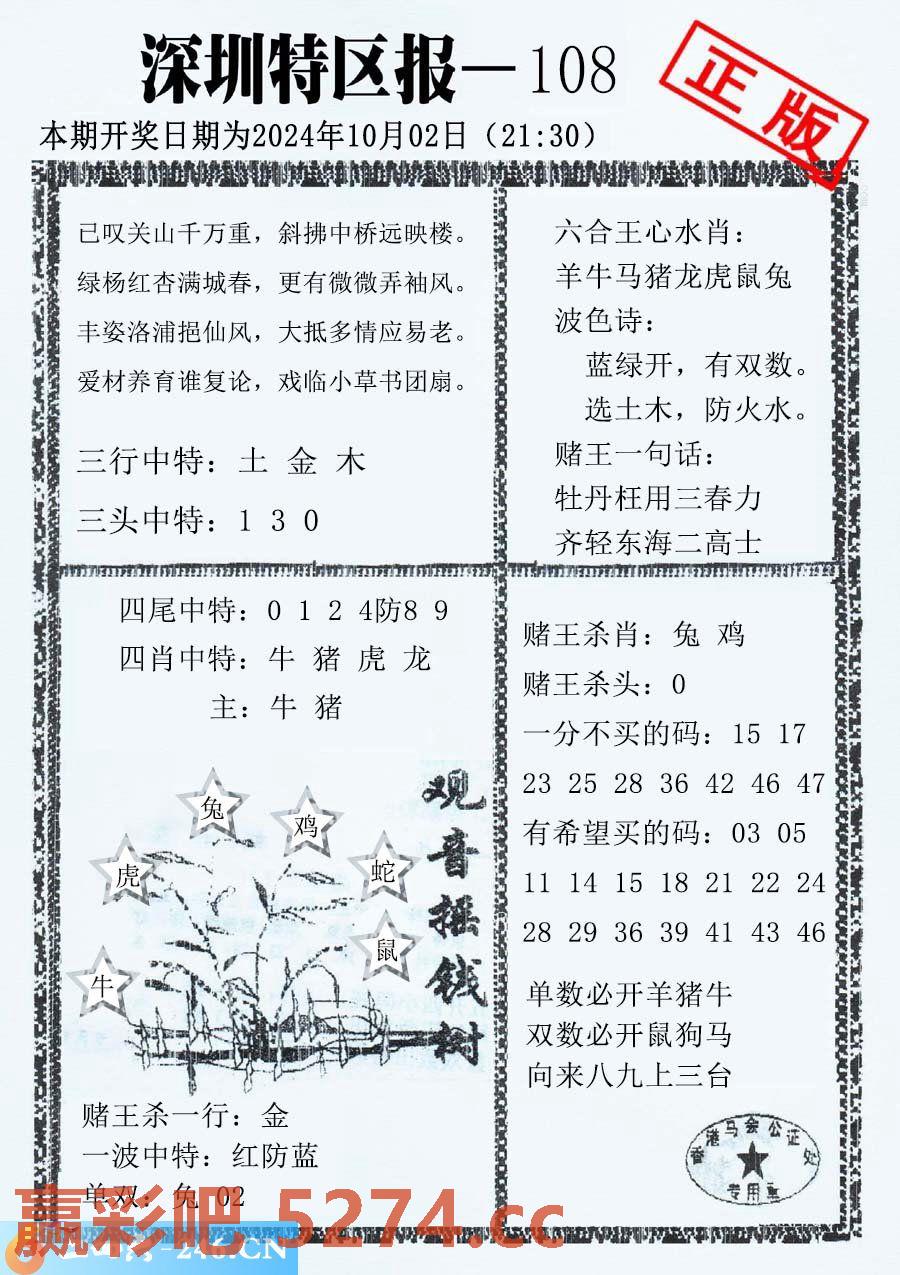 深圳特区报—108
正版
本期开奖日期为2024年10月02日（21:30）
已叹关山千万重，斜拂中桥远映楼。
绿杨红杏满城春，更有微微弄袖风。
丰姿洛浦挹仙风，大抵多情应易老。
爱材养育谁复论，戏临小草书团扇。
三行中特：土 金 木
三头中特：1 3 0
六合王心水肖：
羊牛马猪龙虎鼠兔
波色诗：
蓝绿开，有双数。
选土木，防火水。
赌王一句话：
牡丹枉用三春力
齐轻东海二高士
四尾中特：0 1 2 4防8 9
四肖中特：牛 猪 虎 龙
主：牛 猪
兔
鸡
虎
蛇
鼠
牛
观音摇钱树
赌王杀一行：金
一波中特：红防蓝
单双：兔 02
赌王杀肖：兔 鸡
赌王杀头：0
一分不买的码：15 17
23 25 28 36 42 46 47
有希望买的码：03 05
11 14 15 18 21 22 24
28 29 36 39 41 43 46
单数必开羊猪牛
双数必开鼠狗马
向来八九上三台
香港马会公证处
专用章
赢彩吧 5274.cc